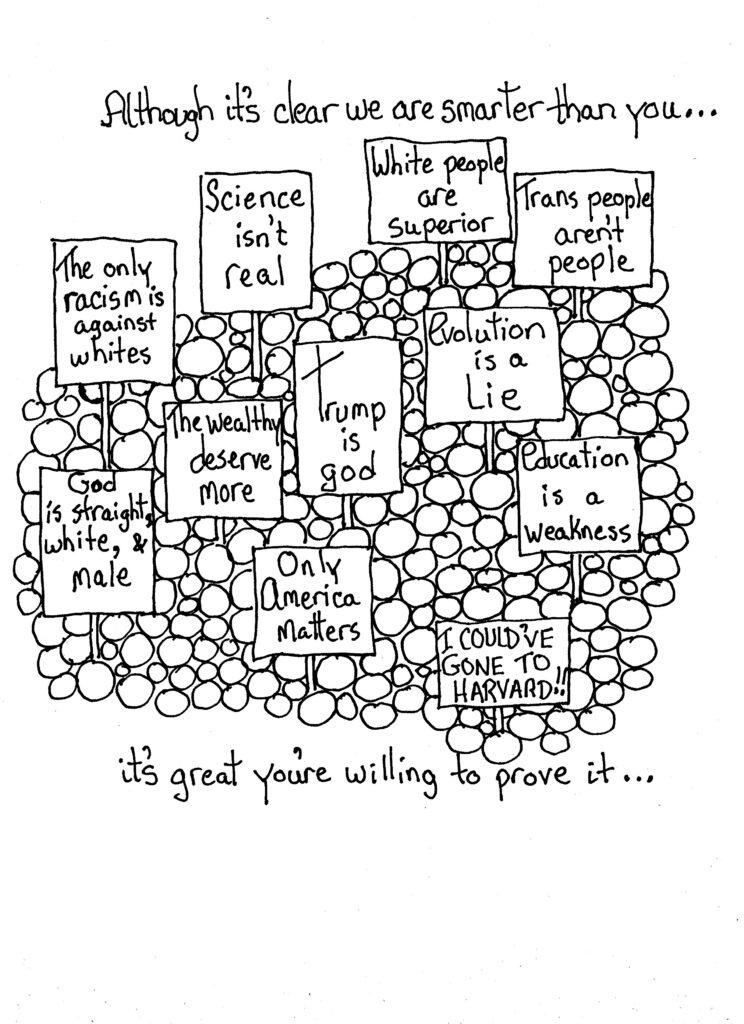 Although it's clear we are smarter than you...
White people
are
superior
Science
isn't
real
Trans people
aren't
people
The only
racism is
against
whites
Evolution
is a
Lie
Trump
is
god
The wealthy
deserve
more
Education
is a
weakness
God
is straight,
white, &
male
Only
America
Matters
I COULD'VE
GONE TO
HARVARD!!
it's great you're willing to prove it...